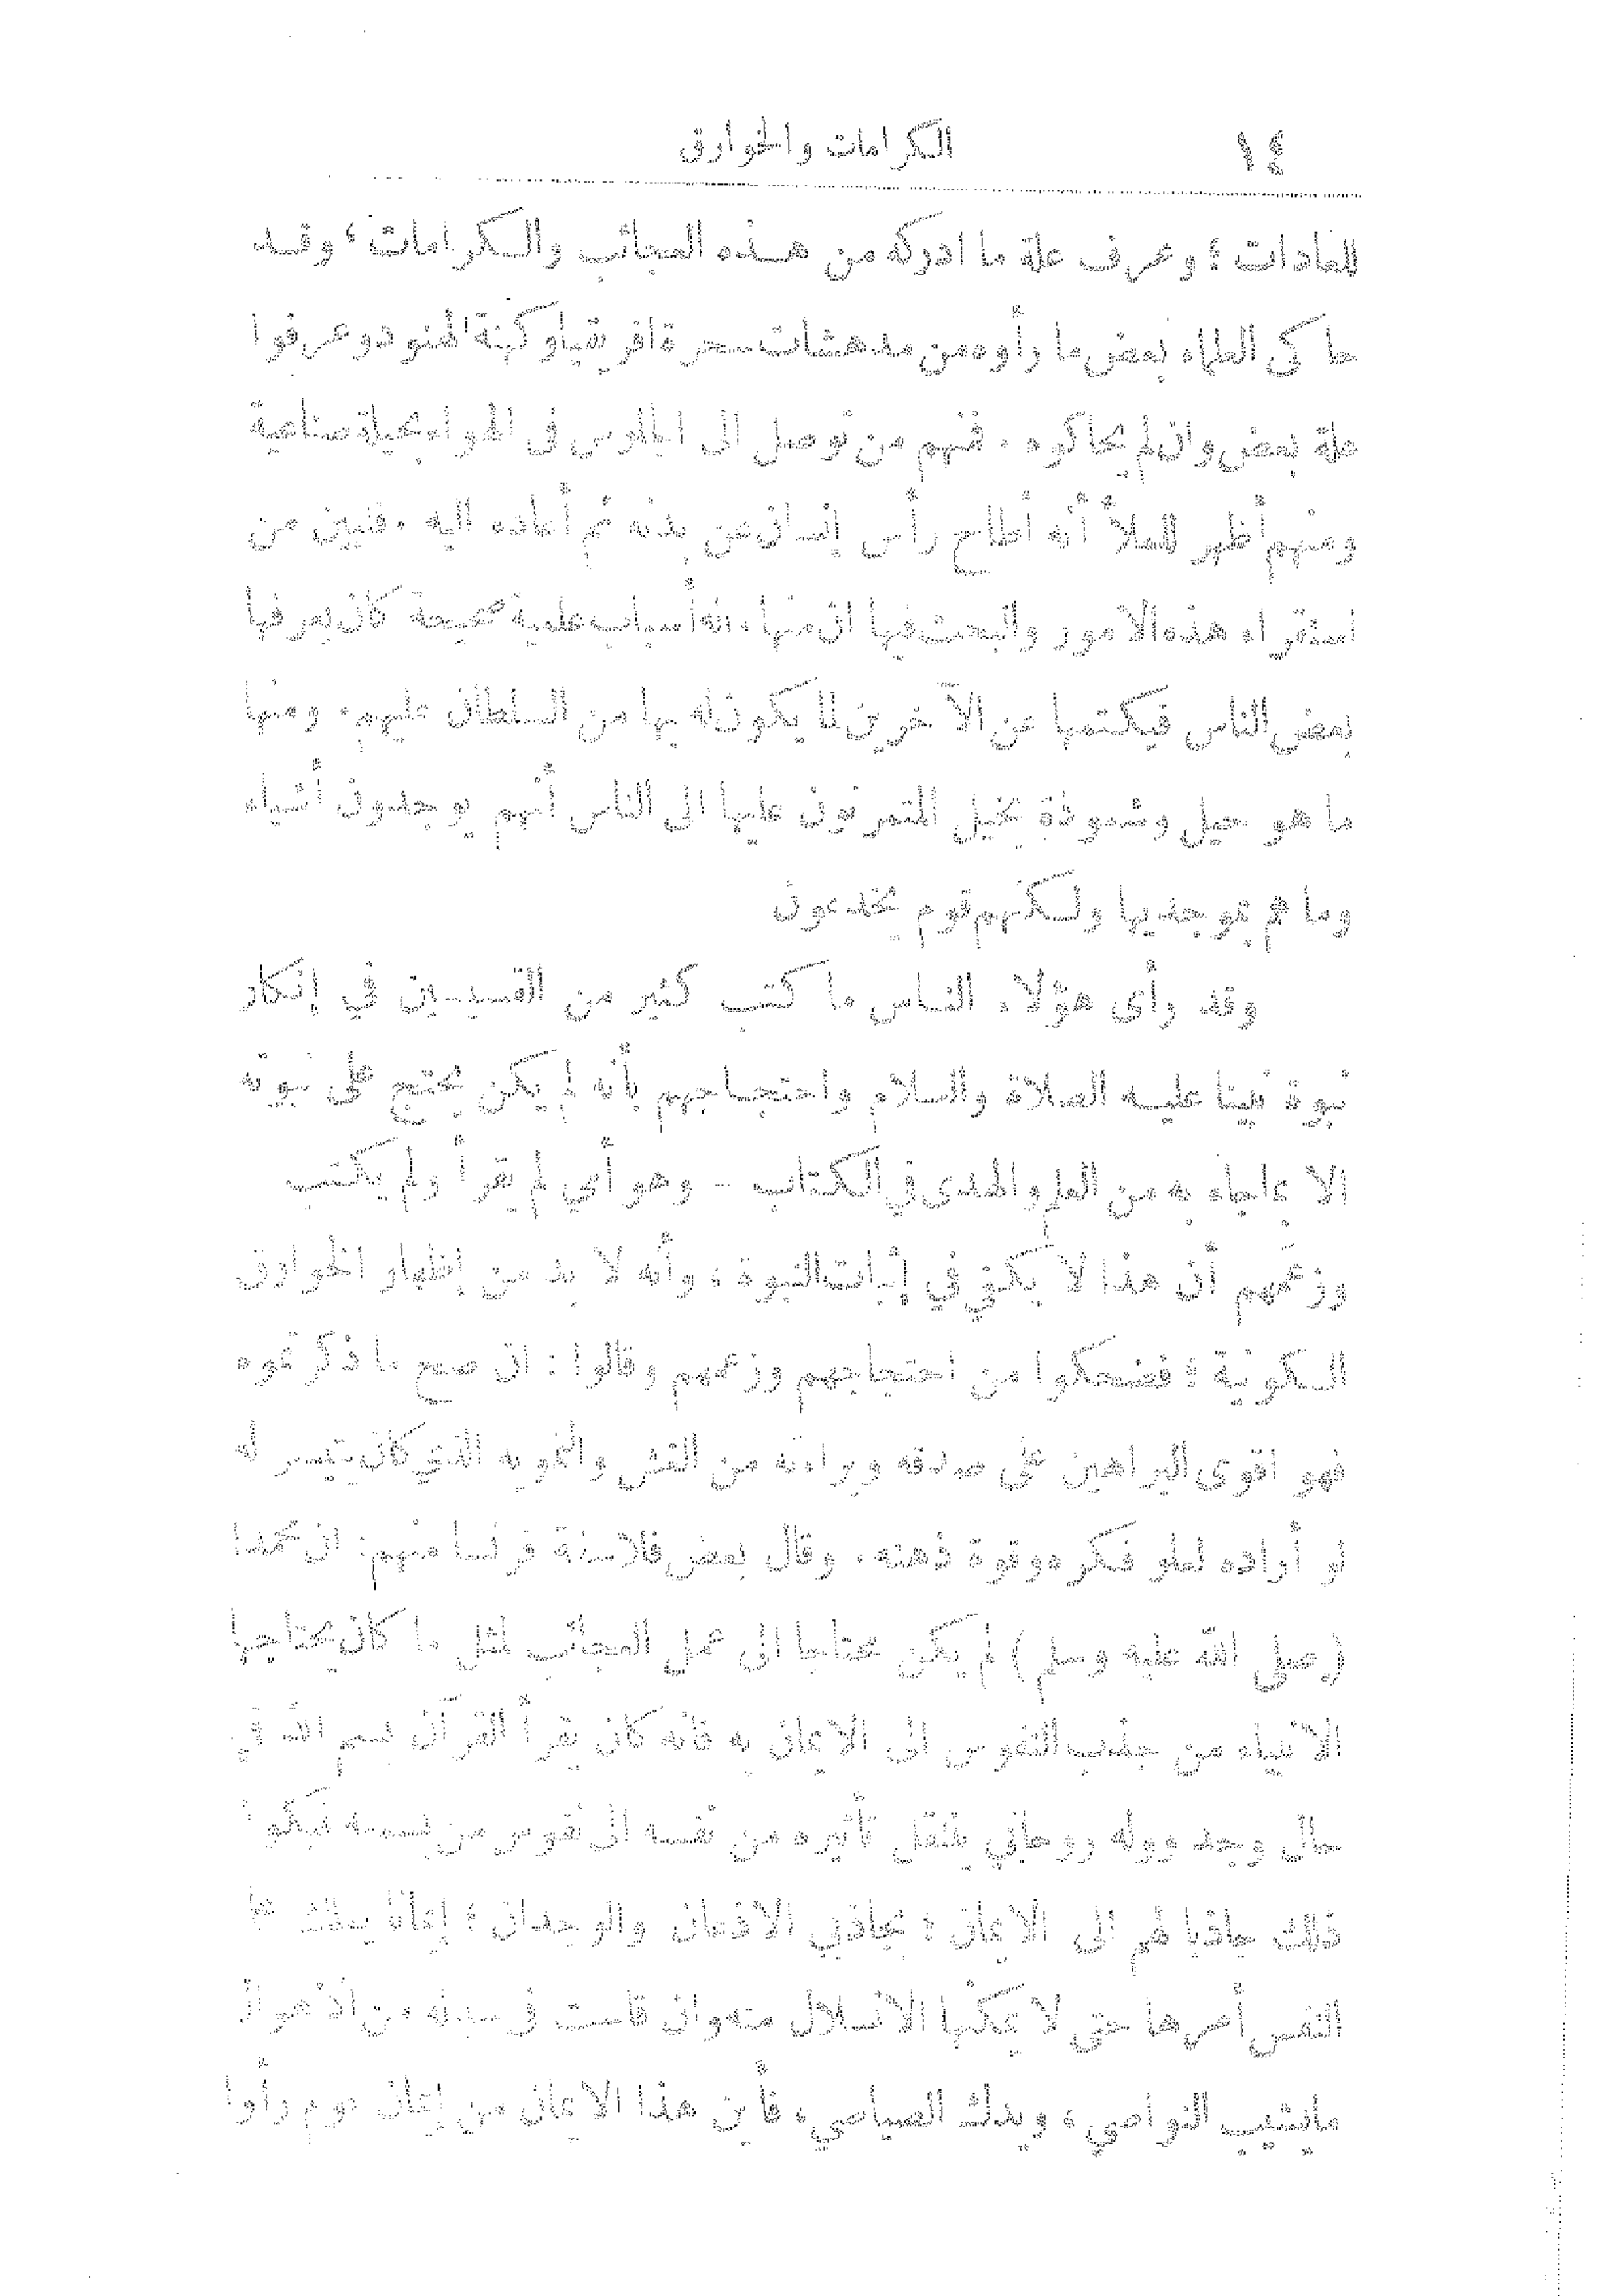 ١٤ الكرامات والخوارق
للعادات ؛ وعرف علة ما ادركه من هـذه العجائب والـكرامات ، وقـد
حاكى العلماء بعض ما رأوه من مدهشات سحرة افريقيا وكهنة الهنود وعرفوا
علة بعض وان لم يحاكوه . فمنهم من توصل الى الجلوس فى الهواء بحيلة صناعية
ومنهم أظهر للملأ أنه أطاح رأس إنسان عن بدنه ثم أعاده اليه . فتبين من
استقراء هذه الامور والبحث فيها ان منها ماله أسباب علمية صحيحة كان يعرفها
بعض الناس فيكتمها عن الآخرين لما يكون له بها من السلطان عليهم . ومنها
ما هو حيل وشعوذة يخيل المتمرنون عليها الى الناس أنهم يوجدون أشياء
وما هم بموجديها ولـكنهم قوم يخدعون
وقد رأى هؤلاء الناس ما كتب كثير من القسيسين في إنكار
نبوة نبينا عليـه الصلاة والسلام واحتجـاجهم بأنه لم يكن يحتج على نبوته
الا بما جاء به من العلم والهدى في الـكتاب - وهو أمي لم يقرأ ولم يكتب
وزعمهم أن هذا لا يكفي في إثبات النبوة ؛ وأنه لا بد من إظهار الخوارق
الـكونية ؛ فضحكوا من احتجاجهم وزعمهم وقالوا : ان صح ما ذكرتموه
فهو اقوى البراهين على صدقه وبراءته من الغش والتمويه الذي كان يتيسر له
لو أراده لعلو فـكره وقوة ذهنه . وقال بعض فلاسفة فرنسا منهم : ان محمدا
(صلى الله عليه وسلم) لم يكن محتاجا الى عمل العجائب لمثل ما كان يحتاجها
الانبياء من جذب النفوس الى الايمان به فانه كان يقرأ القرآن سم الله في
حال وجد ووله روحاني ينتقل تأثيره من نفسه الى نفوس من يسمعه فيكون
ذلك جاذبا لهم الى الايمان ؛ بجاذبي الاذعان والوجدان ؛ إيمانا يملك على
النفس أمرها حتى لا يمكنها الانسلال منه وان قامت في سبيله من الاهوال
ما يشيب النواصي ، ويدك الصياصي ، فأين هذا الايمان من إيمان قوم رأوا